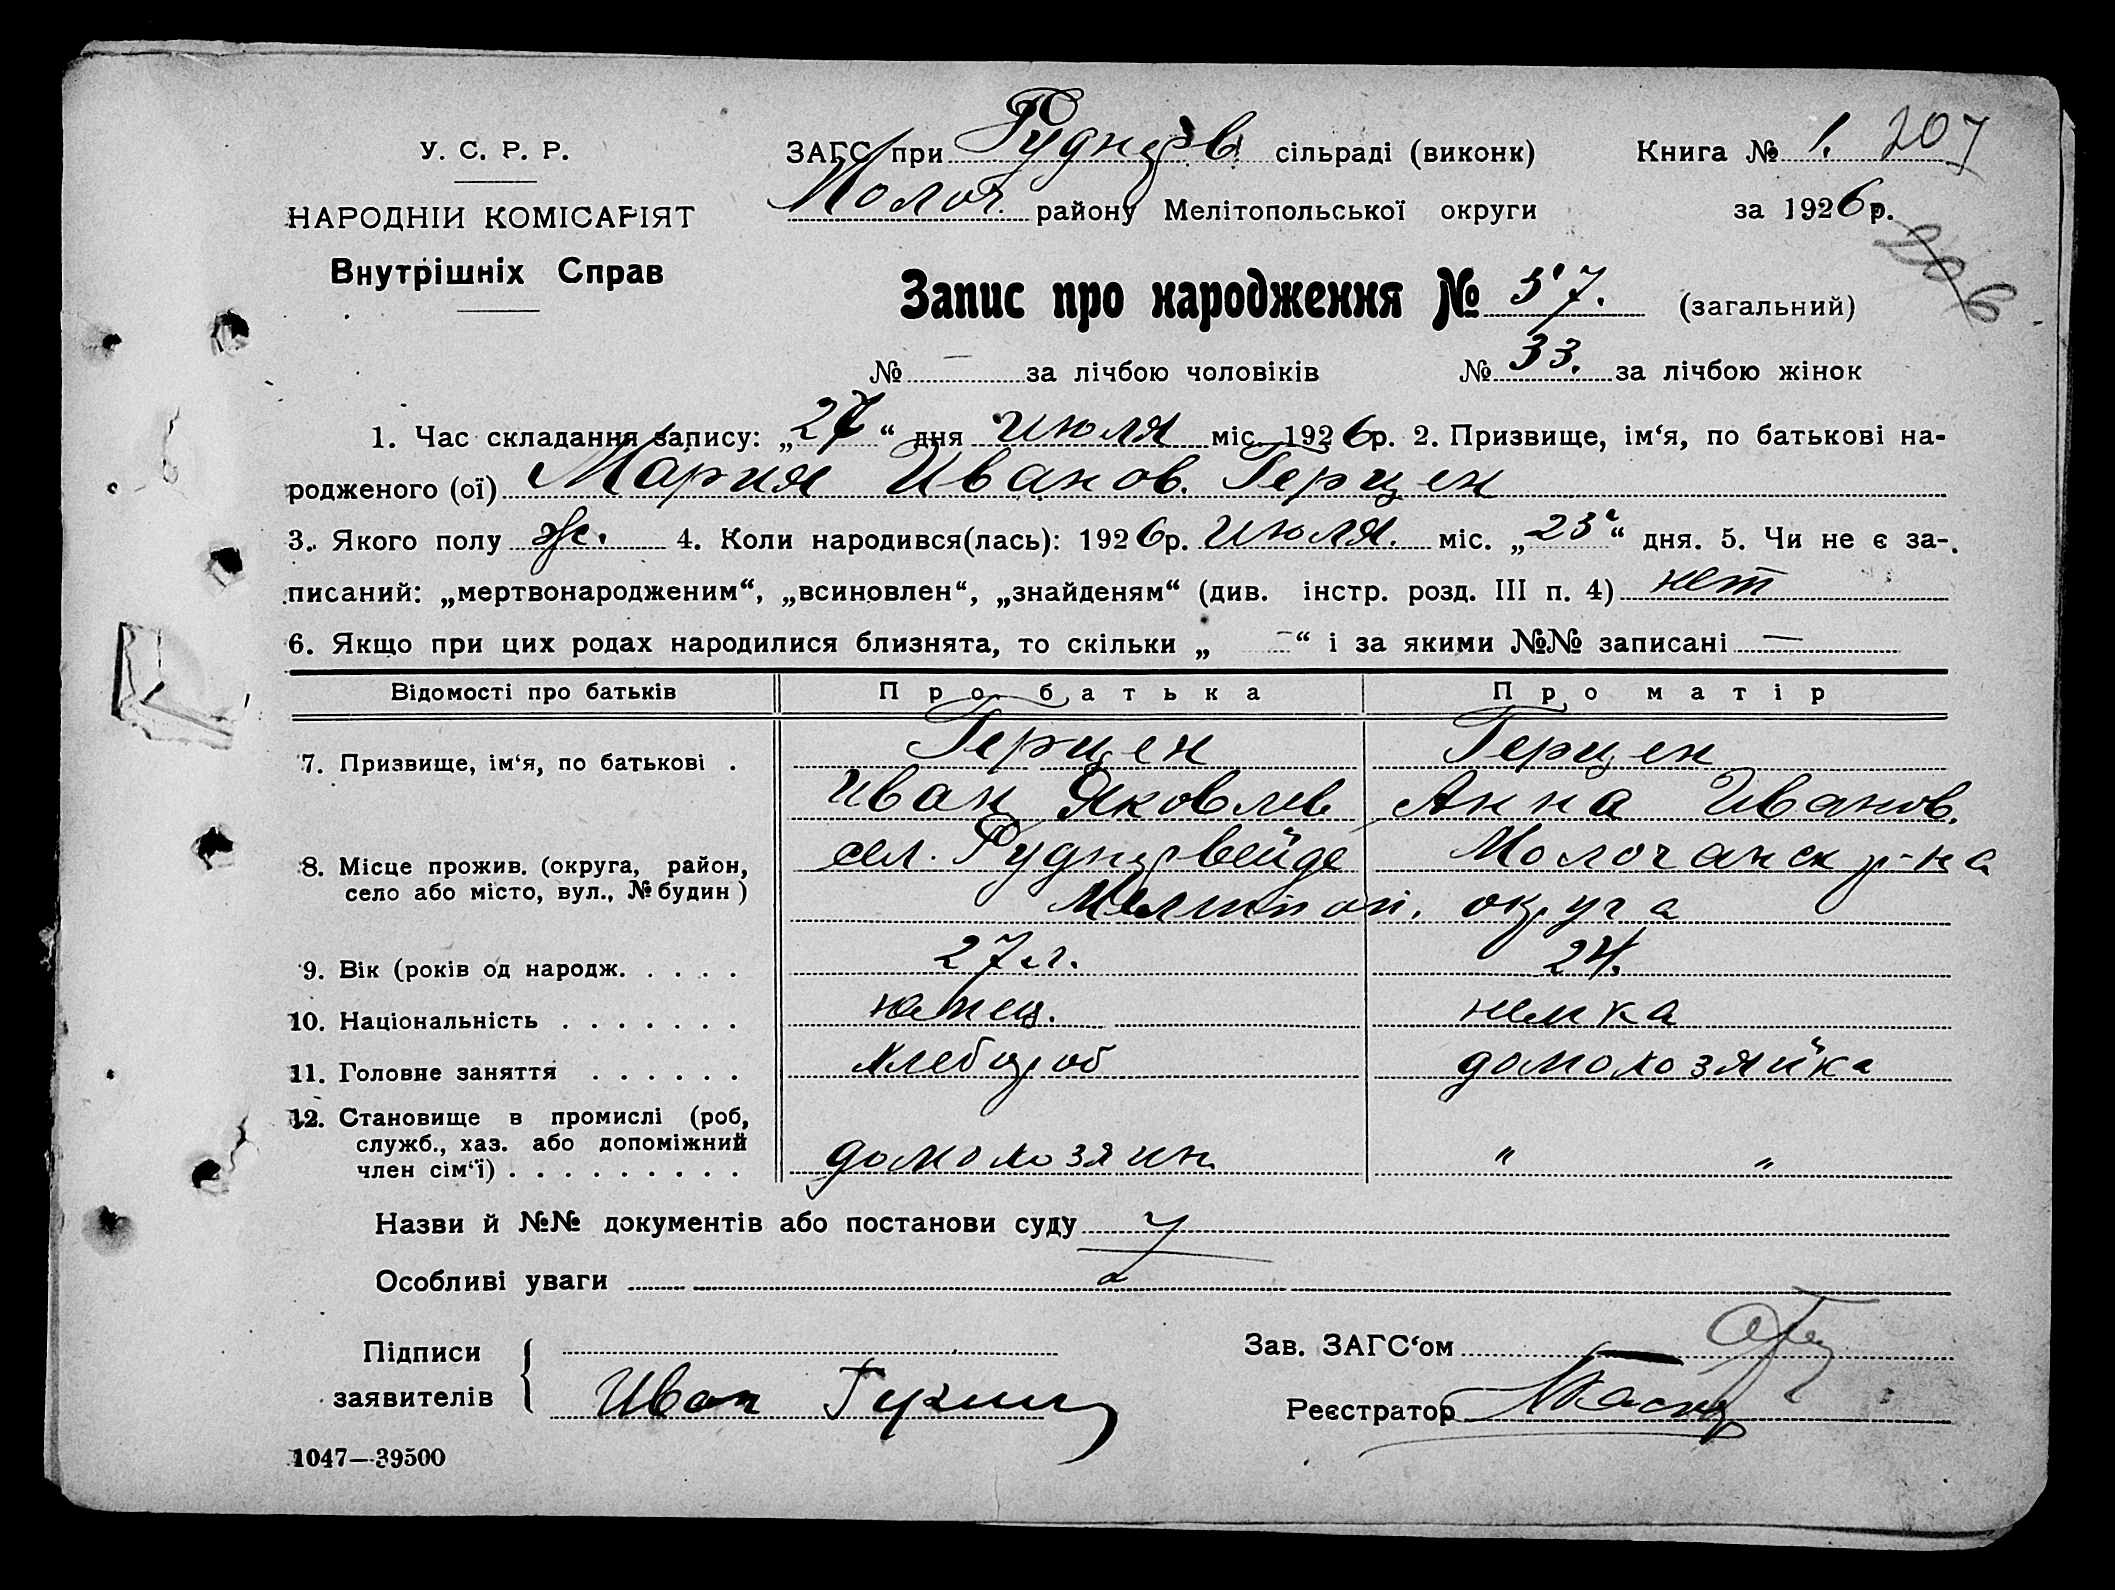 У. С. Р. Р.
НАРОДНІИ КОМІСАРІЯТ
Внутрішніх Справ
ЗАГС при Руднерв. сільраді (виконк) Книга № 1. 207
Молоч. району Мелітопольської округи за 1926р.
206
Запис про народження № 57. (загальний)
№ — за лічбою чоловіків № 33. за лічбою жінок
1. Час складання запису: „27“ дня июля міс. 1926р. 2. Призвище, ім‘я, по батькові на-
родженого (ої) Мария Иванов. Герцен
3. Якого полу ж. 4. Коли народився(лась): 1926р. июля. міс. „23“ дня. 5. Чи не є за-
писаний: „мертвонародженим“, „всиновлен“, „знайденям“ (див. інстр. розд. III п. 4) нет
6. Якщо при цих родах народилися близнята, то скільки „ — “ і за якими №№ записані —
Відомості про батьків Про батька Про матір
7. Призвище, ім‘я, по батькові . Герцен Герцен
Иван Яковлев Анна Иванов.
8. Місце прожив. (округа, район, село або місто, вул., № будин) сел. Руднервейде Молочанск р-на
Мелитоп. округа
9. Вік (років од народж. . . . . 27 л. 24.
10. Національність . . . . . . . немец. немка
11. Головне заняття . . . . . . хлебороб домохозяйка
12. Становище в промислі (роб, служб., хаз. або допоміжний член сім‘ї) . . . . . . . . . домохозяин " "
Назви й №№ документів або постанови суду
Особливі уваги
Підписи заявителів Иван
Зав. ЗАГС‘ом
Реєстратор
1047—39500